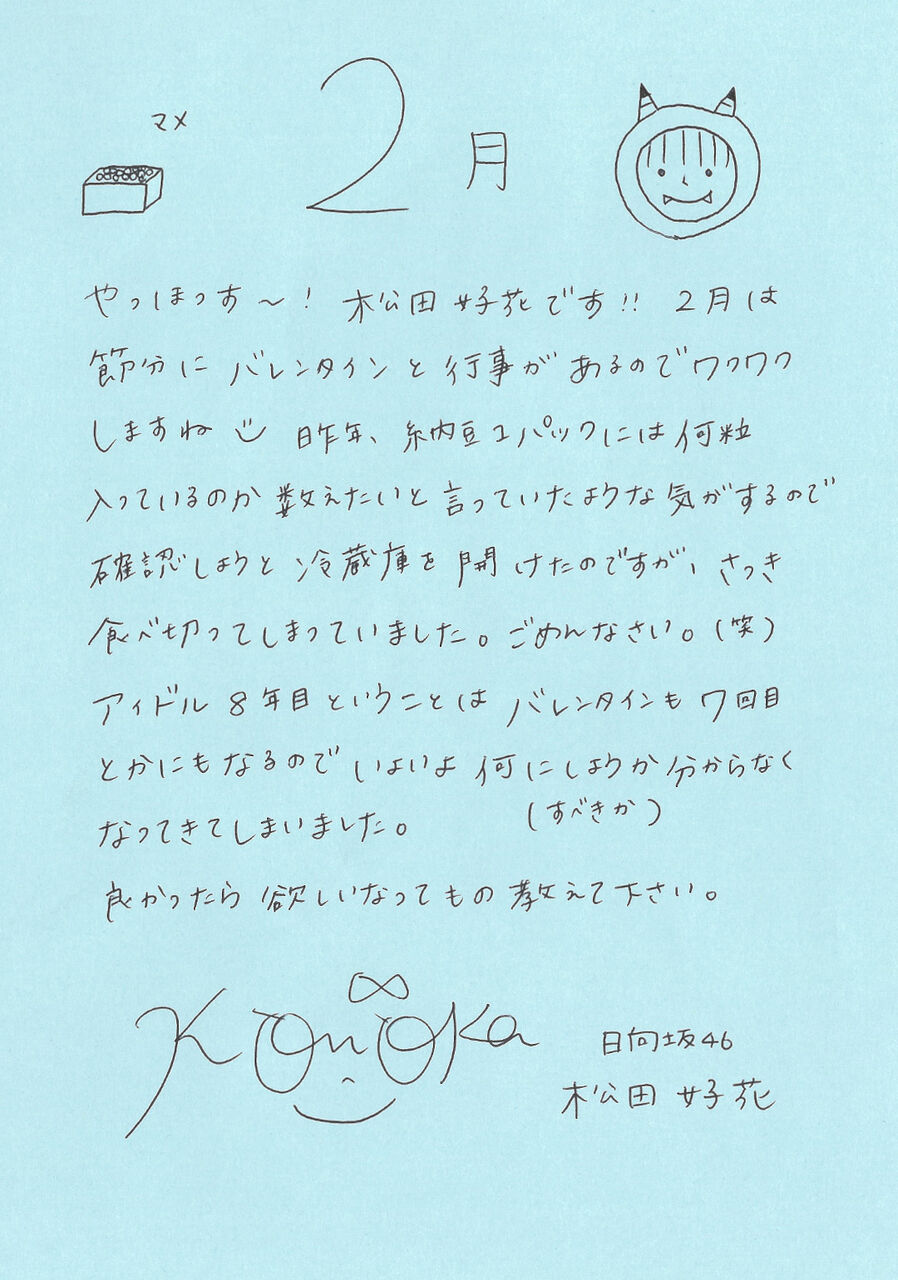 マメ
2月
やっほっす〜！ 松田好花です!! 2月は
節分に バレンタインと 行事が あるのでワクワク
しますね 昨年、納豆1パックには 何粒
入っているのか 数えたいと 言っていたような 気がするので
確認しようと 冷蔵庫を 開けたのですが、さっき
食べ切ってしまっていました。ごめんなさい。(笑)
アイドル 8年目 ということは バレンタインも 7回目
とかにも なるので いよいよ 何にしようか 分からなく
(すべきか)
なってきてしまいました。
良かったら 欲しいなってもの 教えて下さい。
Konoka
日向坂46
松田 好花